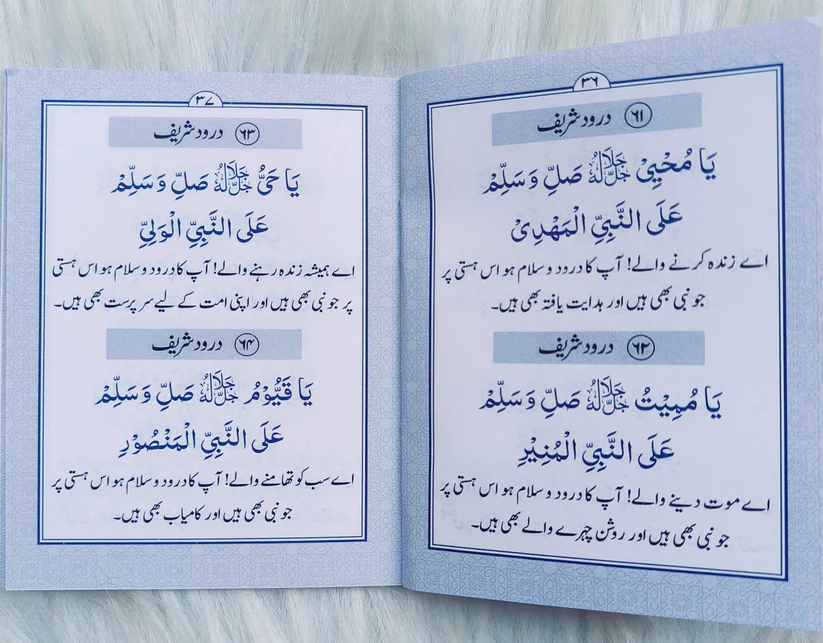 ۳۶
۶۱ درود شریف
يَا مُحْيِیْ جَلَّ جَلَالُهُ صَلِّ وَسَلِّمْ
عَلَى النَّبِيِّ الْمَهْدِیْ
اے زندہ کرنے والے! آپ کا درود و سلام ہو اس ہستی پر
جو نبی بھی ہیں اور ہدایت یافتہ بھی ہیں۔
۶۲ درود شریف
يَا مُمِيْتُ جَلَّ جَلَالُهُ صَلِّ وَسَلِّمْ
عَلَى النَّبِيِّ الْمُنِيْرِ
اے موت دینے والے! آپ کا درود و سلام ہو اس ہستی پر
جو نبی بھی ہیں اور روشن چہرے والے بھی ہیں۔
۳۷
۶۳ درود شریف
يَا حَیُّ جَلَّ جَلَالُهُ صَلِّ وَسَلِّمْ
عَلَى النَّبِيِّ الْوَلِيِّ
اے ہمیشہ زندہ رہنے والے! آپ کا درود و سلام ہو اس ہستی
پر جو نبی بھی ہیں اور اپنی امت کے لیے سرپرست بھی ہیں۔
۶۴ درود شریف
يَا قَيُّوْمُ جَلَّ جَلَالُهُ صَلِّ وَسَلِّمْ
عَلَى النَّبِيِّ الْمَنْصُوْرِ
اے سب کو تھامنے والے! آپ کا درود و سلام ہو اس ہستی پر
جو نبی بھی ہیں اور کامیاب بھی ہیں۔